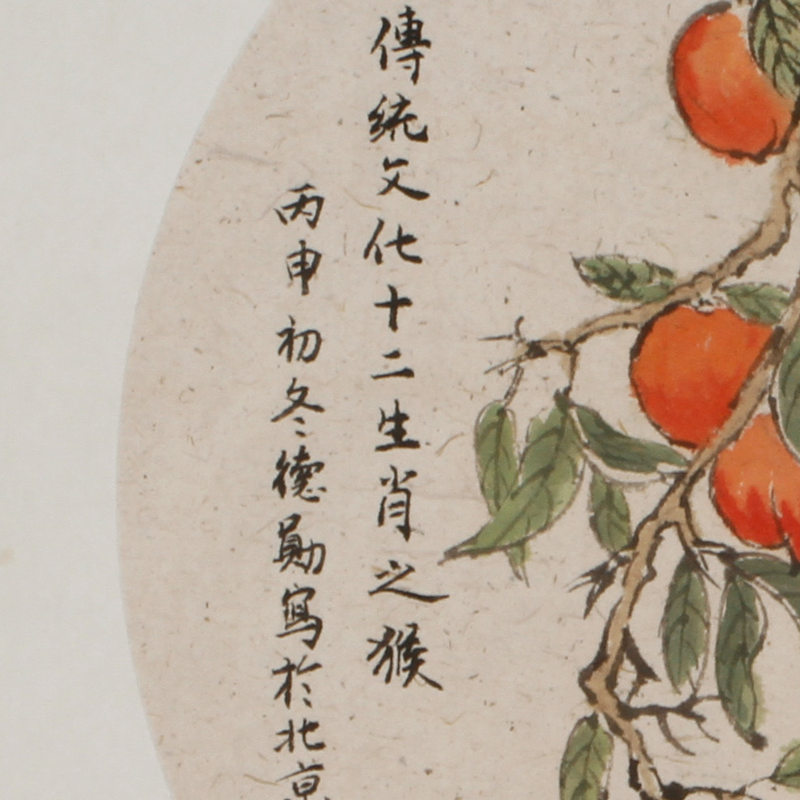 傳統文化十二生肖之猴
丙申初冬德勛寫於北京